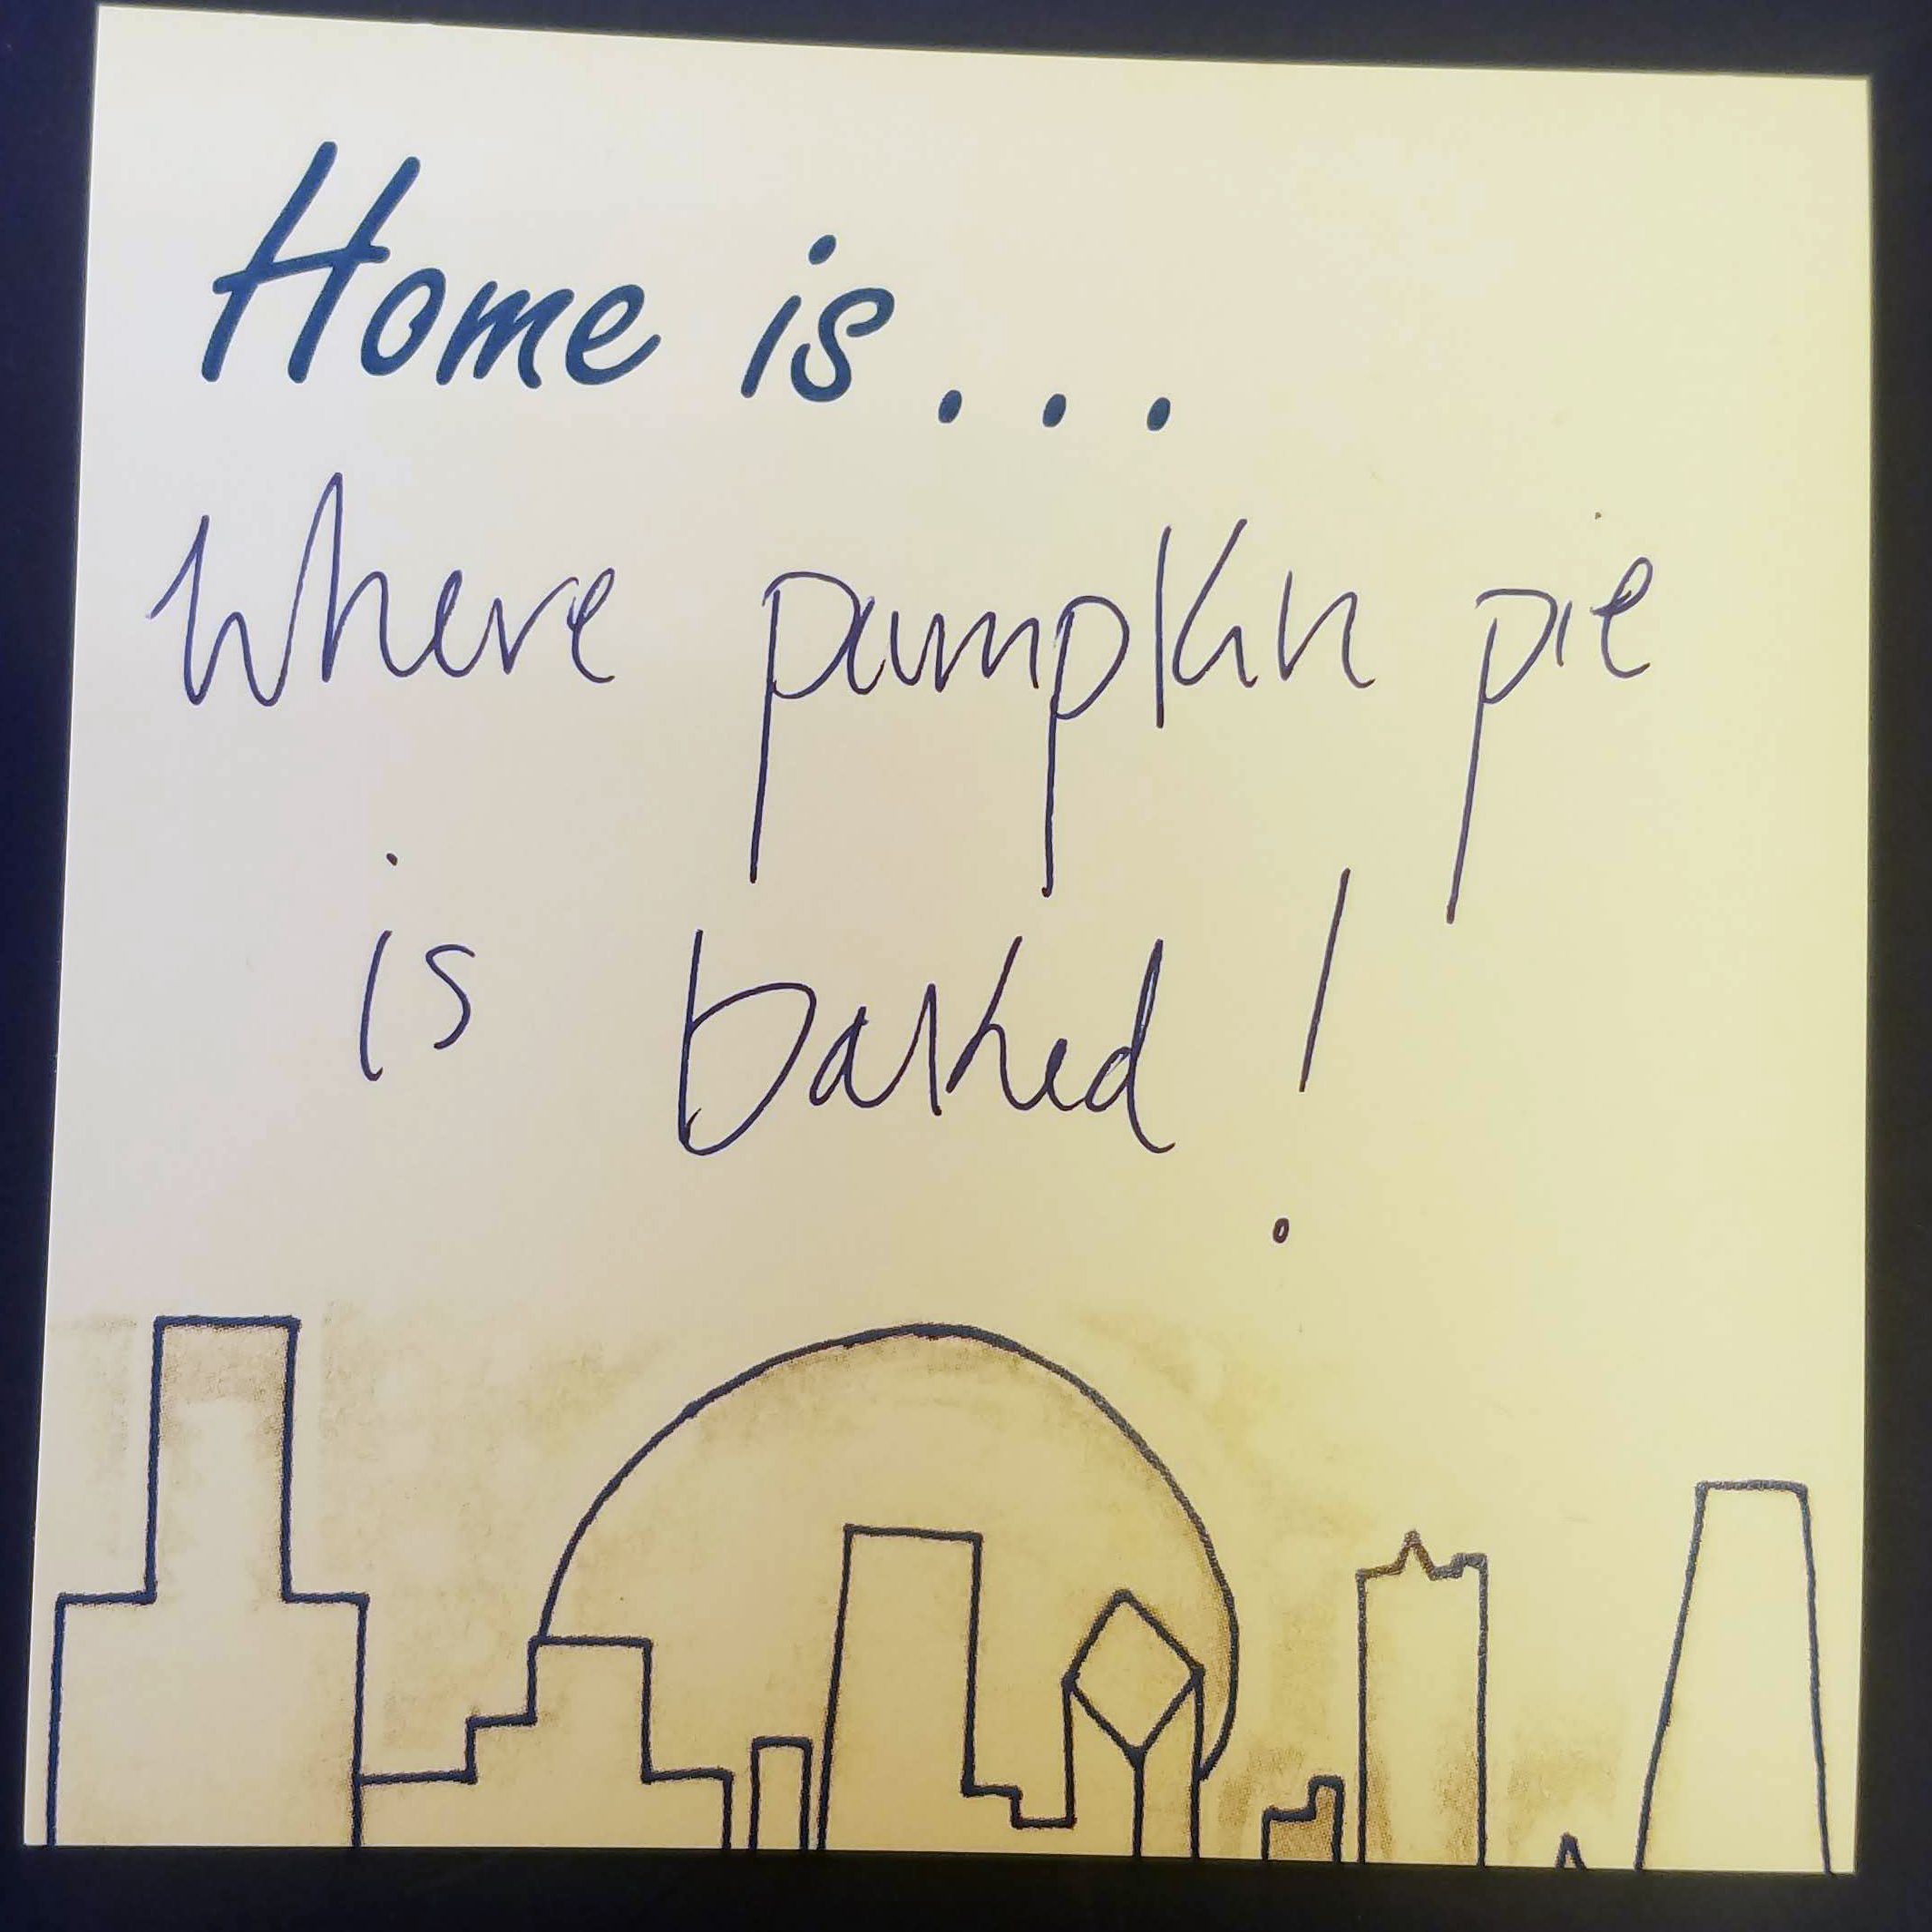 Home is...
Where pumpkin pie
is baked!